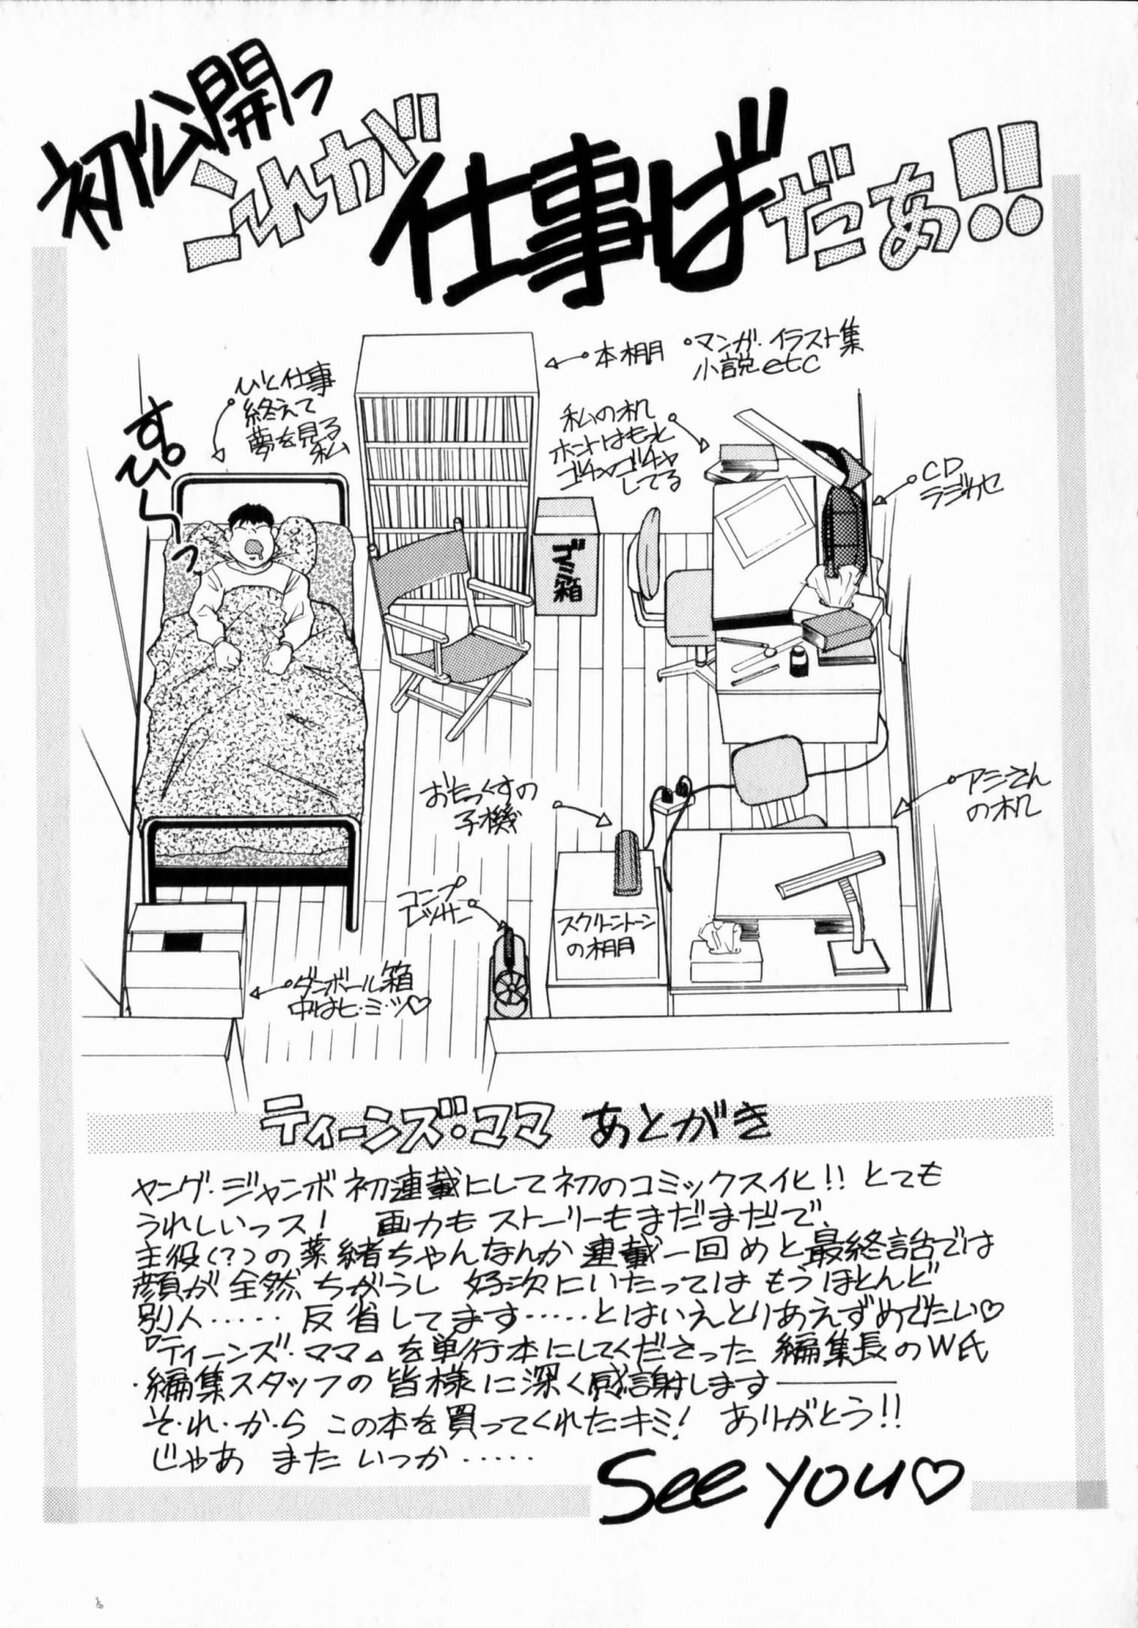 初公開っ
これが
仕事ば
だあ!!
本棚
・マンガ・イラスト集
小説etc
ひと仕事
終えて
夢を見る
私
すひ〜っ
私の机
ホントはもっと
ゴチャゴチャ
してる
CD
ラジカセ
ゴミ箱
アシさん
の机
おもっくすの
子機
コンプ
レッサー
スクリーントーン
の棚
ダンボール箱
中はヒ・ミ・ツ♡
ティーンズ・ママ あとがき
ヤング・ジャンボ初連載にして初のコミックスイヒ!! とても
うれしいっス! 画力もストーリーもまだまだで、
主役(?)の薬緒ちゃんなんか連載一回めと最終話では
顔が全然ちがうし 好次にいたってはもうほとんど
別人‥‥‥反省してます‥‥‥とはいえとりあえずめでたい♡
『ティーンズ・ママ』を単行本にしてくださった編集長のW氏
・編集スタッフの皆様に深く感謝します――
そ・れ・か・ら この本を買ってくれたキミ! ありがとう!!
じゃあ また いつか‥‥‥
See you♡